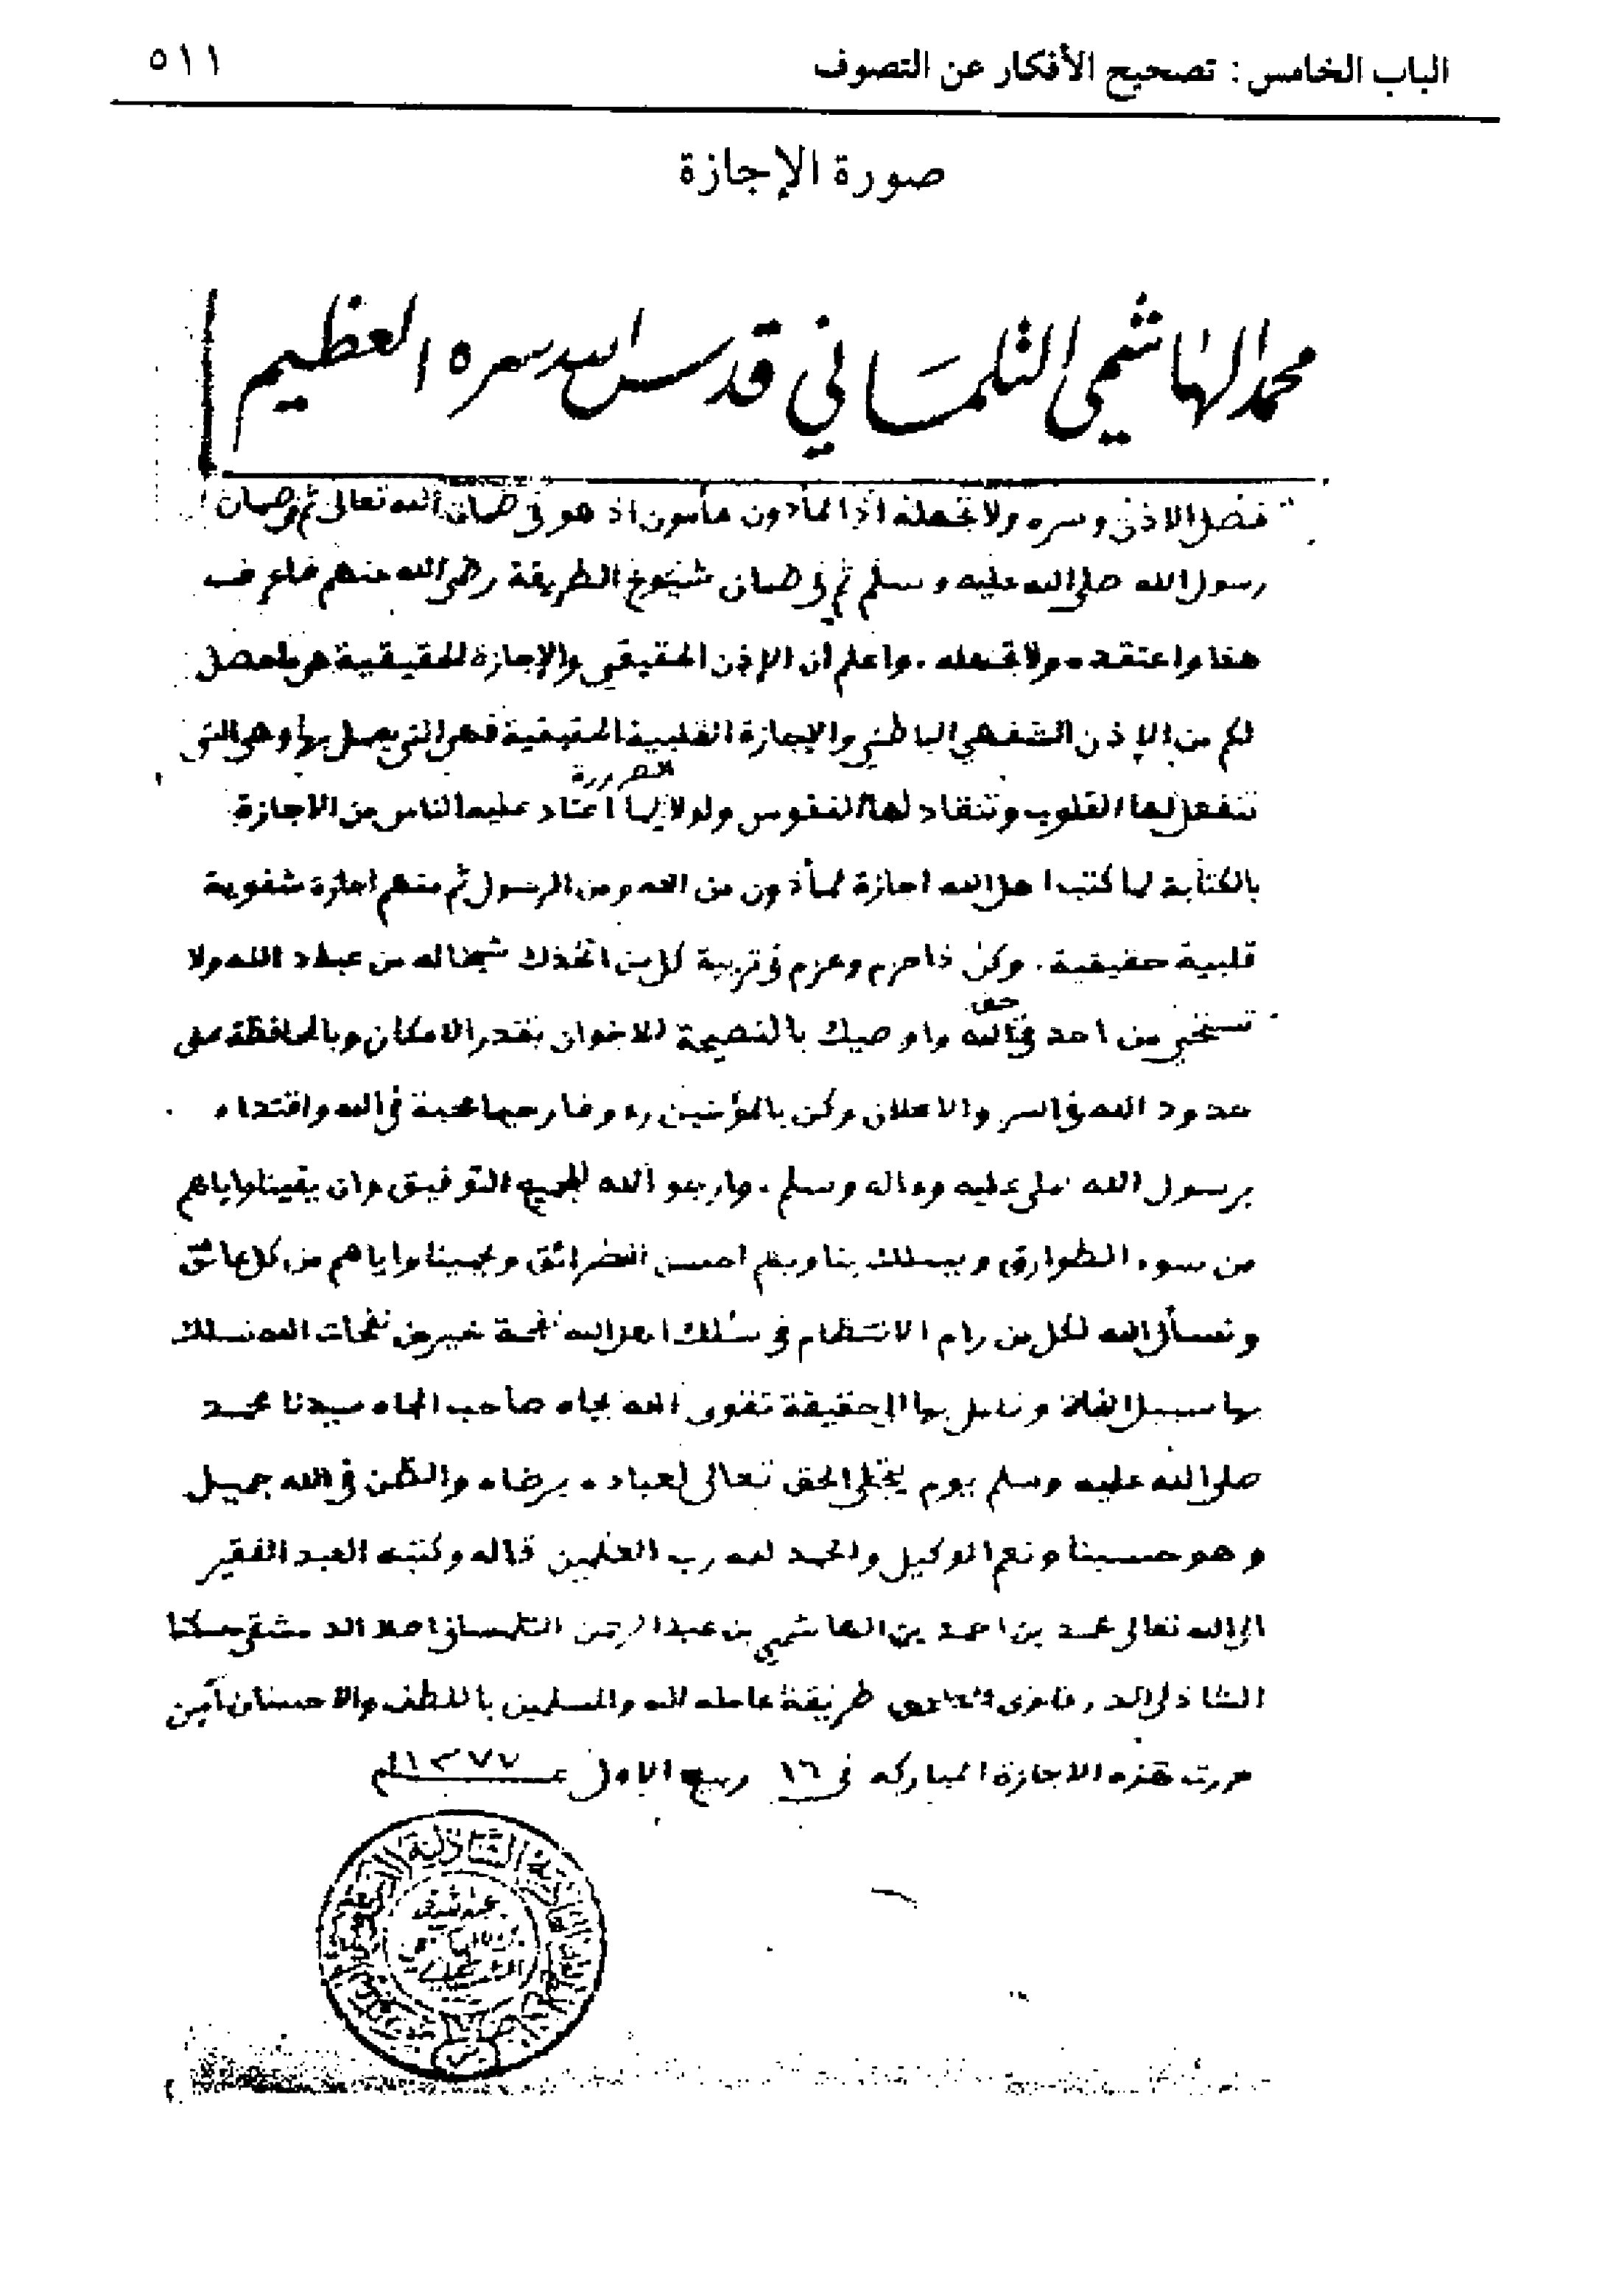 الباب الخامس : تصحيح الأفكار عن التصوف ٥١١
صورة الإجازة
محمد الهاشمي التلمساني قدس الله سره العظيم
فضل الاذن وسره ولا تجهله اذ المأذون مأمون اذ هو في ضمان الله تعالى ثم في ضمان
رسول الله صلى الله عليه وسلم ثم في ضمان شيوخ الطريقة رضي الله عنهم فاعرف
هذا واعتقده ولا تجهله . واعلم ان الإذن الحقيقي والإجازة الحقيقية هي ما حصل
لكم من الإذن الشفهي الباطني والإجازة القلبية الحقيقية فهي التي يعمل بها وهي التي
تنفعل لها القلوب وتنقاد لها النفوس ولولا الضرورة لما اعتاد عليه الناس من الاجازة
بالكتابة لما كتب اهل الله اجازة لمأذون من الله ومن الرسول ثم منهم اجازة شفوية
قلبية حقيقية . وكن ذا حزم وعزم في تربية كل من اتخذك شيخا له من عباد الله ولا
تستحي من احد في حق الله واوصيك بالنصيحة للاخوان بقدر الامكان وبالمحافظة على
حدود الله في السر والاعلان وكن بالمؤمنين رءوفا رحيما محبة في الله واقتداء
برسول الله صلى عليه وءاله وسلم . وارجو الله للجميع التوفيق وان يقينا واياهم
من سوء الطوارق ويسلك بنا وبهم احسن الطرائق ويجنبنا واياهم من كل عائق
ونسأل الله لكل من رام الانتظام في سلك اهل الله نفحة خير من نفحات الله نسلك
بها سبيل النجاة ونصل بها الى حقيقة تقوى الله بجاه صاحب الجاه سيدنا محمد
صلى الله عليه وسلم يوم يتجلى الحق تعالى لعباده برضاه والظن في الله جميل
وهو حسبنا ونعم الوكيل والحمد لله رب العلمين قاله وكتبه العبد الفقير
الى الله تعالى محمد بن احمد بن الهاشمي بن عبد الرحمن التلمساني اصلا الدمشقي سكنا
الشاذلي الدرقاوي طريقة عامله الله والمسلمين باللطف والاحسان آمين
حررت هذه الاجازة المباركه في ١٦ ربيع الاول عام ١٣٧٧
الشاذلية